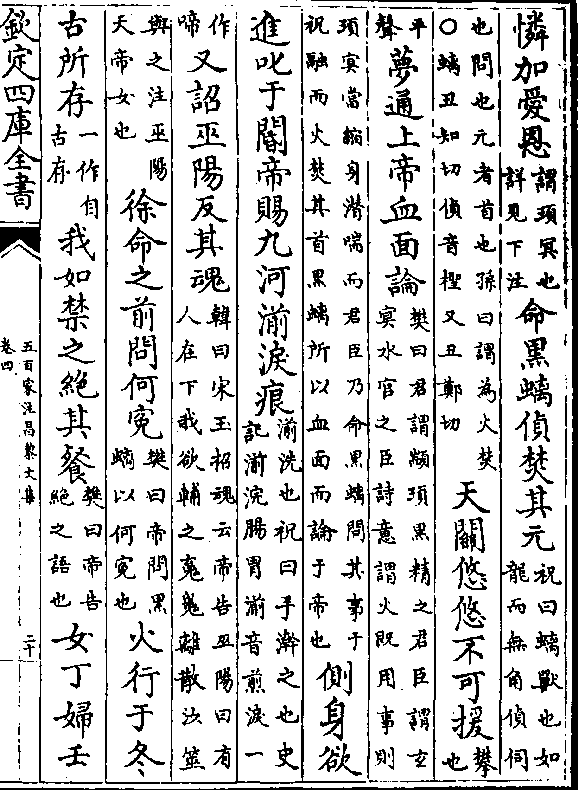 憐加愛恩謂頊冥也詳見下注命黑螭偵焚其元祝曰螭獸也如龍而無角偵伺
也問也元者首也孫曰謂為火焚○螭丑知切偵音檉又丑鄭切天關悠悠不可援攀也
平聲夢通上帝血面論樊曰君謂顓頊黑精之君臣謂玄冥水官之臣詩意謂火既用事則
頊冥當縮身潛喘而君臣乃命黑螭問其事于祝融而火焚其首黑螭所以血面而論于帝也側身欲
進叱于閽帝賜九河湔淚痕湔洗也祝曰手瀚之也史記湔浣腸胃湔音煎淚一
作啼又詔巫陽反其魂韓曰宋玉招魂云帝告巫陽曰有人在下我欲輔之䰟魄離散汝筮
與之注巫陽天帝女也徐命之前問何冤樊曰帝問黑螭以何冤也火行于冬
古所存一作自古存我如禁之絕其餐樊曰帝告絕之語也女丁婦壬
欽定四庫全書
五百家注昌黎文集
卷四
二十